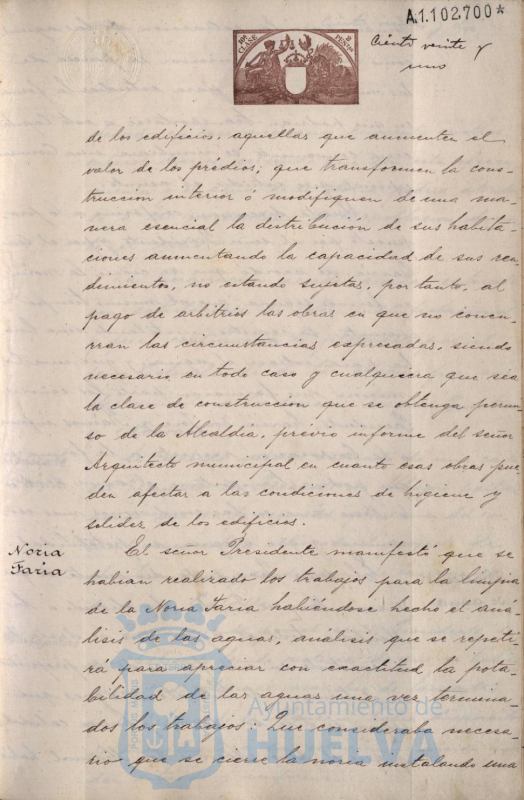 A.1.102.700*
10ª CLASE
2 PESETAS
Ciento veinte y
uno
de los edificios, aquellas que aumenten el
valor de los prédios; que transformen la cons-
truccion interior ó modifiquen de una ma-
nera esencial la distribución de sus habita-
ciones aumentando la capacidad de sus ren-
dimientos, no estando sujetas, por tanto, al
pago de arbitrios las obras en que no concu-
rran las circunstancias expresadas, siendo
necesario en todo caso y cualquiera que sea
la clase de construccion que se obtenga permi-
so de la Alcaldia, prévio informe del señor
Arquitecto municipal en cuanto esas obras pue-
den afectar a las condiciones de higiene y
solidez de los edificios.
Noria
Faria
El señor Presidente manifestó que se
habian realizado los trabajos para la limpia
de la Noria Faria habiéndose hecho el aná-
lisis de las aguas, análisis que se repeti-
rá para apreciar con exactitud la pota-
bilidad de las aguas una vez termina-
dos los trabajos: Que consideraba necesa-
rio que se cierre la noria instalando una
Ayuntamiento de
HUELVA